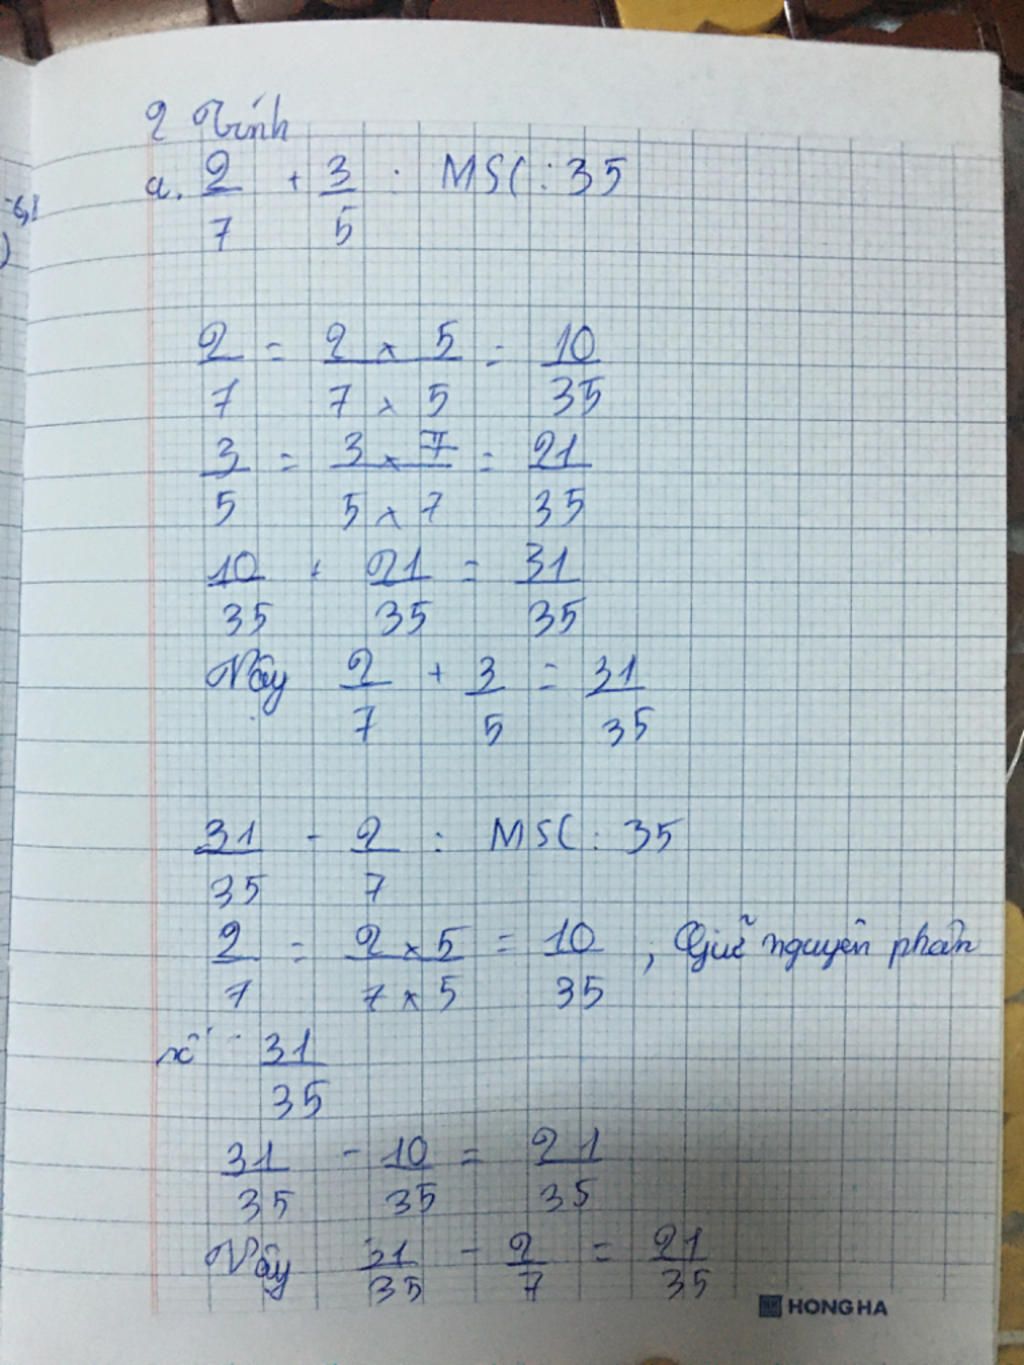 2 Tính
a. 2/7 + 3/5 : MSC : 35
2/7 = 2 × 5 / 7 × 5 = 10/35
3/5 = 3 × 7 / 5 × 7 = 21/35
10/35 + 21/35 = 31/35
Vậy 2/7 + 3/5 = 31/35
31/35 - 2/7 : MSC : 35
2/7 = 2 × 5 / 7 × 5 = 10/35 , Giữ nguyên phân
số 31/35
31/35 - 10/35 = 21/35
Vậy 31/35 - 2/7 = 21/35
HONG HA